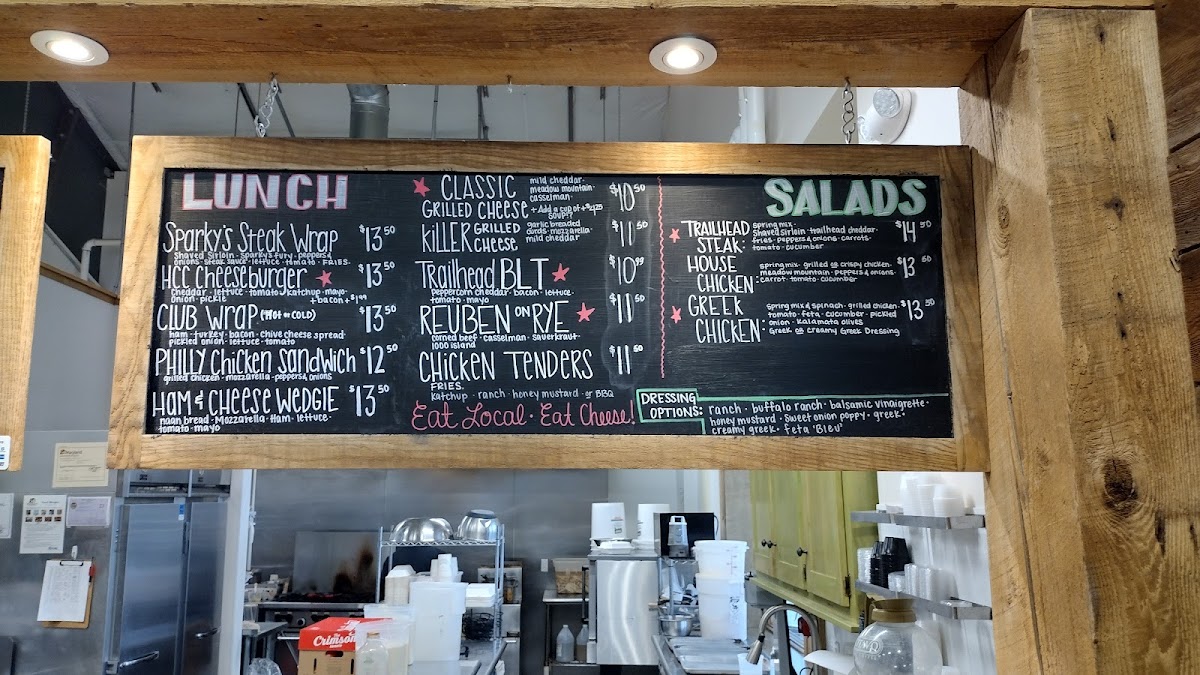 LUNCH
Sparky's Steak Wrap $13 50
Shaved Sirloin · sparky's fury · peppers &
onions · steak sauce · lettuce · tomato · FRIES.
HCC Cheeseburger $13 50
cheddar · lettuce · tomato · ketchup · mayo ·
onion · pickle +bacon +$1 99
CLUB WRAP (HOT or COLD) $13 50
ham · turkey · bacon · chive cheese spread ·
pickled onion · lettuce · tomato
PHILLY Chicken Sandwich $12 50
grilled chicken · mozzarella · peppers & onions
HAM & CHEESE WEDGIE $13 50
naan bread · Mozzarella · Ham · lettuce ·
tomato · mayo
CLASSIC GRILLED CHEESE $10 50
mild cheddar ·
meadow mountain ·
casselman ·
+ Add a cup of +$4.25
SOUP!?
KILLER GRILLED CHEESE $11 50
garlic breaded
curds · mozzarella ·
mild cheddar
Trailhead BLT $10 99
peppercorn cheddar · bacon · lettuce ·
tomato · mayo
REUBEN ON RYE $11 50
corned beef · casselman · sauerkraut ·
1000 island
CHICKEN TENDERS $11 50
FRIES.
Ketchup · ranch · honey mustard · or BBQ
Eat Local · Eat Cheese!
SALADS
TRAILHEAD STEAK: $14 50
spring mix ·
Shaved sirloin · trailhead cheddar ·
fries · peppers & onions · carrots ·
tomato · cucumber
HOUSE CHICKEN: $13 50
spring mix · grilled or crispy chicken ·
meadow mountain · peppers & onions ·
carrot · tomato · cucumber
GREEK CHICKEN: $13 50
spring mix & spinach · grilled chicken ·
tomato · feta · cucumber · pickled
onion · kalamata olives
Greek or creamy Greek Dressing
DRESSING OPTIONS:
ranch · buffalo ranch · balsamic vinaigrette ·
honey mustard · sweet onion poppy · greek ·
creamy greek · feta 'Bleu'
Crimson